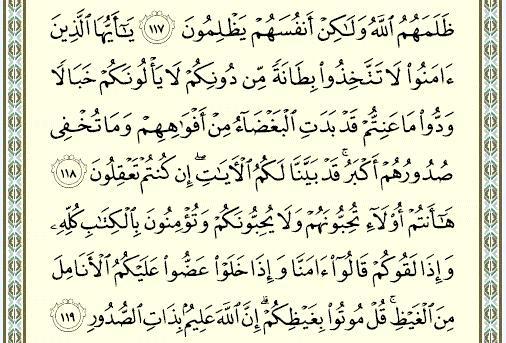 ظَلَمَهُمُ ٱللَّهُ وَلَـٰكِنْ أَنفُسَهُمْ يَظْلِمُونَ ١١٧ يَـٰٓأَيُّهَا ٱلَّذِينَ
ءَامَنُوا۟ لَا تَتَّخِذُوا۟ بِطَانَةً مِّن دُونِكُمْ لَا يَأْلُونَكُمْ خَبَالًا
وَدُّوا۟ مَا عَنِتُّمْ قَدْ بَدَتِ ٱلْبَغْضَآءُ مِنْ أَفْوَٰهِهِمْ وَمَا تُخْفِى
صُدُورُهُمْ أَكْبَرُ ۚ قَدْ بَيَّنَّا لَكُمُ ٱلْـَٔايَـٰتِ ۖ إِن كُنتُمْ تَعْقِلُونَ ١١٨
هَـٰٓأَنتُمْ أُو۟لَآءِ تُحِبُّونَهُمْ وَلَا يُحِبُّونَكُمْ وَتُؤْمِنُونَ بِٱلْكِتَـٰبِ كُلِّهِۦ
وَإِذَا لَقُوكُمْ قَالُوٓا۟ ءَامَنَّا وَإِذَا خَلَوْا۟ عَضُّوا۟ عَلَيْكُمُ ٱلْأَنَامِلَ
مِنَ ٱلْغَيْظِ ۚ قُلْ مُوتُوا۟ بِغَيْظِكُمْ ۗ إِنَّ ٱللَّهَ عَلِيمٌۢ بِذَاتِ ٱلصُّدُورِ ١١٩